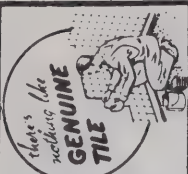 there's
nothing like
GENUINE
TILE